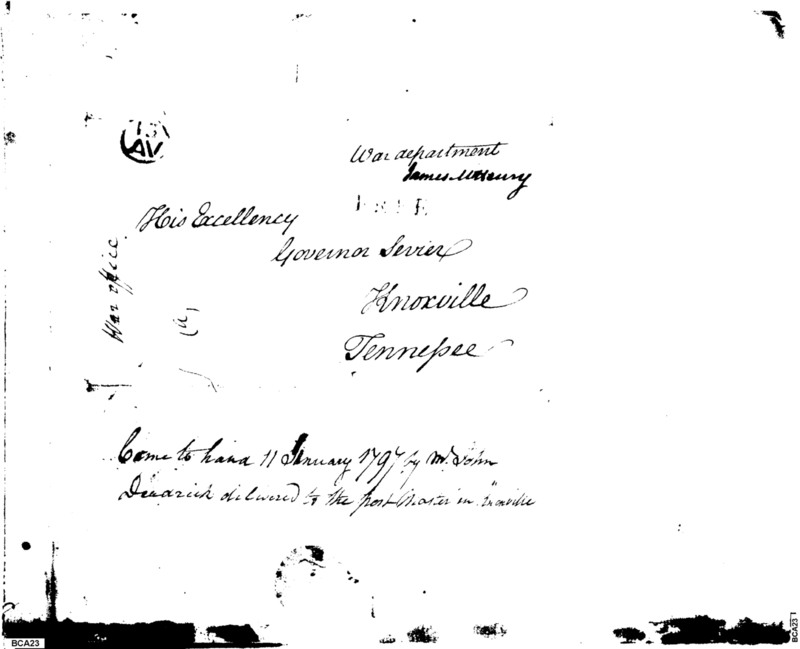 15
AV
War department
James McHenry
FREE
His Excellency
Governor Sevier
Knoxville
Tenneſsee
War office
(a)
Come to hand 11 January 1797 by Mr. John
Deadrick delivered to the post Master in Knoxville
BCA23
BCA23